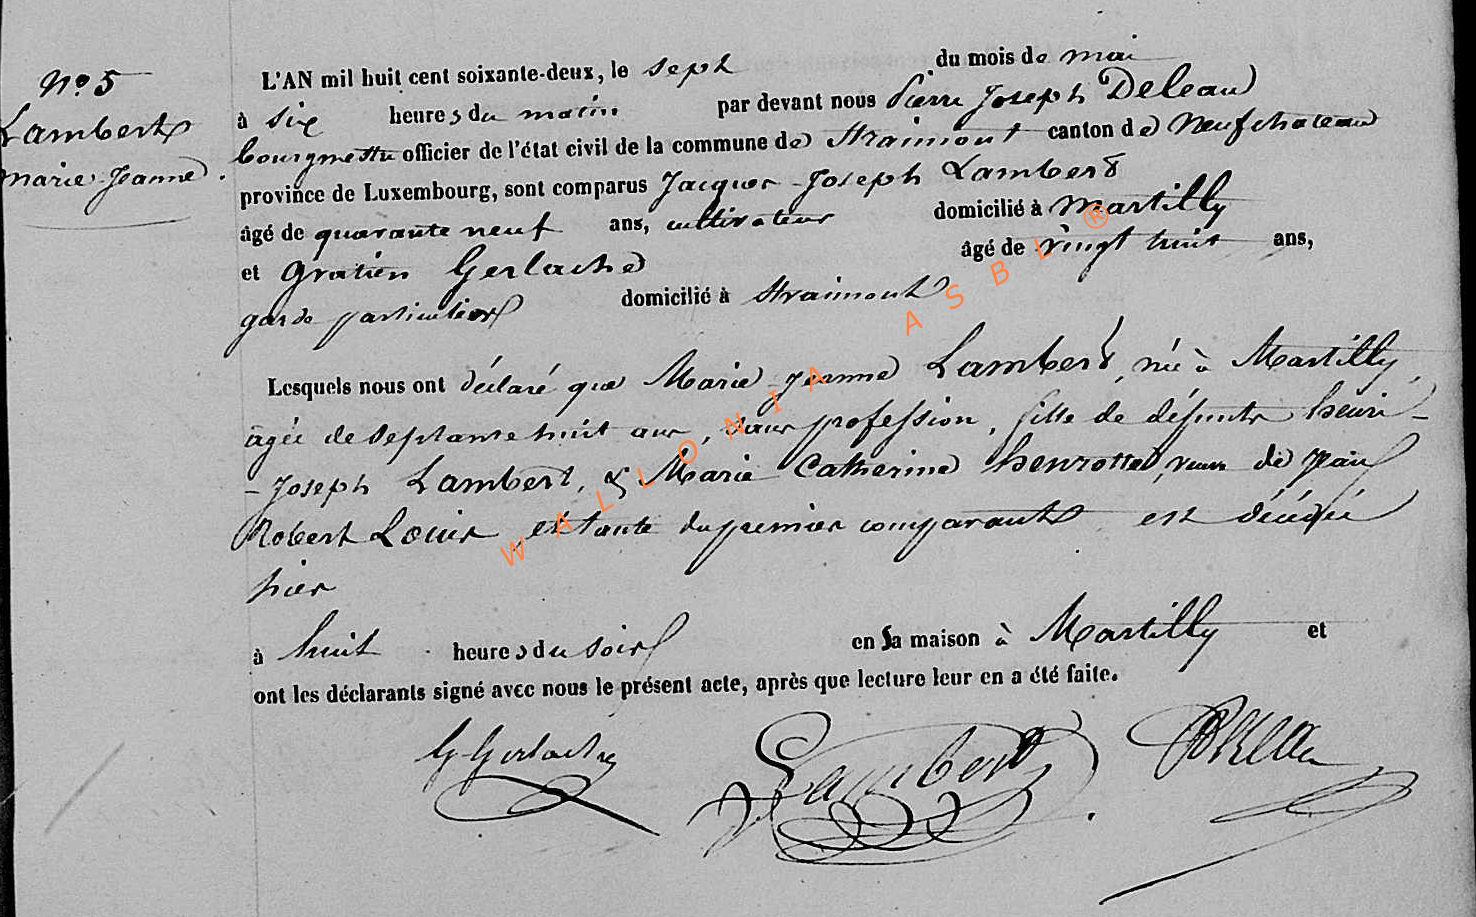 N° 5
Lambert
Marie-Jeanne.
L'AN mil huit cent soixante-deux, le sept du mois de mai
à six heures du matin par devant nous Pierre Joseph Deleau
bourgmestre officier de l'état civil de la commune de Straimont canton de Neufchateau
province de Luxembourg, sont comparus Jacques-Joseph Lambert
âgé de quarante neuf ans, cultivateur domicilié à Martilly
et Gratien Gerlache âgé de vingt huit ans,
garde particulier domicilié à Straimont
Lesquels nous ont déclaré que Marie-Jeanne Lambert, née à Martilly,
agée de septante huit ans, sans profession, fille de défunts henri-
-Joseph Lambert, & Marie Catherine henrotte, veuve de Jean
Robert Louis, et tante du premier comparant, est décédée
hier
à huit heures du soir en sa maison à Martilly et
ont les déclarants signé avec nous le présent acte, après que lecture leur en a été faite.
G Gerlache Lambert Deleau
WALLONIA ASBL ®